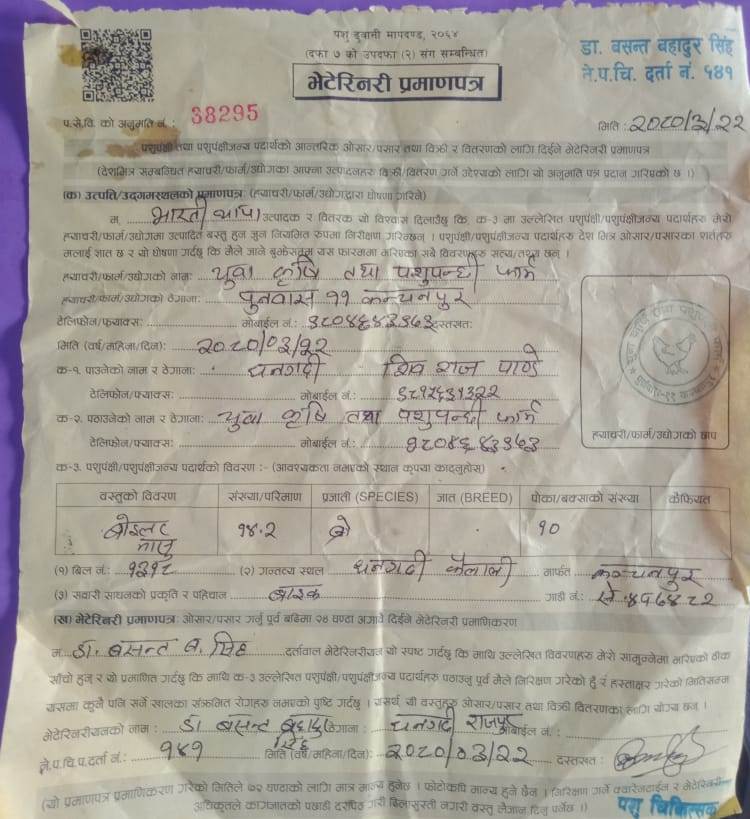 पशु ढुवानी मापदण्ड, २०६४
(दफा ७ को उपदफा (२) संग सम्बन्धित)
भेटेरिनरी प्रमाणपत्र
डा. वसन्त बहादुर सिंह
ने.प.चि. दर्ता नं. ५४१
प.से.वि. को अनुमति नं. : 38295
मिति : 2020/3/22
पशुपंक्षी तथा पशुपंक्षीजन्य पदार्थको आन्तरिक ओसार/पसार तथा विक्री र वितरणको लागि दिईने भेटेरिनरी प्रमाणपत्र
(देशभित्र सम्बन्धित ह्याचरी/फार्म/उद्योगका आफ्ना उत्पादनहरु विक्री/वितरण गर्ने उद्देश्यको लागि यो अनुमति पत्र प्रदान गरिएको छ ।)
(क) उत्पति/उदगमस्थलको प्रमाणपत्र: (ह्याचरी/फार्म/उद्योगद्वारा घोषणा गरिने)
म, भारती थापा उत्पादक र वितरक यो विश्वास दिलाउँछु कि, क-३ मा उल्लेखित पशुपंक्षी/पशुपंक्षीजन्य पदार्थहरु मेरो
ह्याचरी/फार्म/उद्योगमा उत्पादित बस्तु हुन् जुन नियमित रुपमा निरीक्षण गरिन्छन् । पशुपंक्षी/पशुपंक्षीजन्य पदार्थहरु देश भित्र ओसार/पसारका शर्तहरु
मलाई ज्ञात छ र यो घोषणा गर्दछु कि मैले जाने बुझेसम्म यस फारममा भरिएका सबै विवरणहरु सत्य/तथ्य छन् ।
ह्याचरी/फार्म/उद्योगको नाम: युवा कृषि तथा पशुपन्छी फार्म
ह्याचरी/फार्म/उद्योगको ठेगाना: पुनर्वास ११ कन्चनपुर
टेलिफोन/फ्याक्स: मोबाईल नं.: दस्तखत:
मिति (वर्ष/महिना/दिन): 2020/03/22
क-१. पाउनेको नाम र ठेगाना: धनगढी शिव राज पाण्डे
टेलिफोन/फ्याक्स: मोबाईल नं.:
क-२. पठाउनेको नाम र ठेगाना: युवा कृषि तथा पशुपन्छी फार्म
टेलिफोन/फ्याक्स: मोबाईल नं.:
ह्याचरी/फार्म/उद्योगको छाप
क-३. पशुपंक्षी/पशुपंक्षीजन्य पदार्थको विवरण :- (आवश्यकता नभएको स्थान कृपया काट्नुहोस)
वस्तुको विवरण संख्या/परिमाण प्रजाती (SPECIES) जात (BREED) पोका/बक्साको संख्या कैफियत
ब्रोइलर मासु १४.२ ब्रो १०
(१) बिल नं.: (२) गन्तव्य स्थल धनगढी कैलाली मार्फत कन्चनपुर
(३) सवारी साधनको प्रकृति र पहिचान बाइक गाडी नं.:
(ख) भेटेरिनरी प्रमाणपत्र: ओसार/पसार गर्नु पूर्व बढिमा २४ घण्टा अगावै दिईने भेटेरिनरी प्रमाणिकरण
म डा. बसन्त ब. सिंह दर्तावाल भेटेरिनरीयन यो स्पष्ट गर्दछु कि माथि उल्लेखित विवरणहरु मेरो सामुन्नेमा भरिएको ठीक
साँचो हुन् र यो प्रमाणित गर्दछु कि माथि क-३ उल्लेखित पशुपंक्षी/पशुपंक्षीजन्य पदार्थहरु पठाउनु पूर्व मैले निरिक्षण गरेको हुँ र हस्ताक्षर गरेको मितिसम्म
यसमा कुनै पनि सर्ने खालका संक्रमित रोगहरु नभएको पुष्टि गर्दछु । यसर्थ, यी वस्तुहरु ओसार/पसार तथा विक्री वितरणका लागि योग्य छन् ।
भेटेरिनरीयनको नाम : डा बसन्त बहादुर सिंह ठेगाना : धनगढी राजपुर मोबाईल नं. :
ने.प.चि.प.दर्ता नं.: ५४१ मिति (वर्ष/महिना/दिन): 2020/03/22 दस्तखत :
(यो प्रमाणपत्र प्रमाणिकरण गरेको मितिले ७२ घण्टाको लागि मात्र मान्य हुनेछ । फोटोकपि मान्य हुने छैन । निरिक्षण गर्ने क्वारेनटाईन र भेटेरिनरी
अधिकृतले कागजातको पछाडी दरपिठ गरी बिलासुस्ती नगरी वस्तु लैजान दिनु पर्नेछ ।)
पशु चिकित्सक